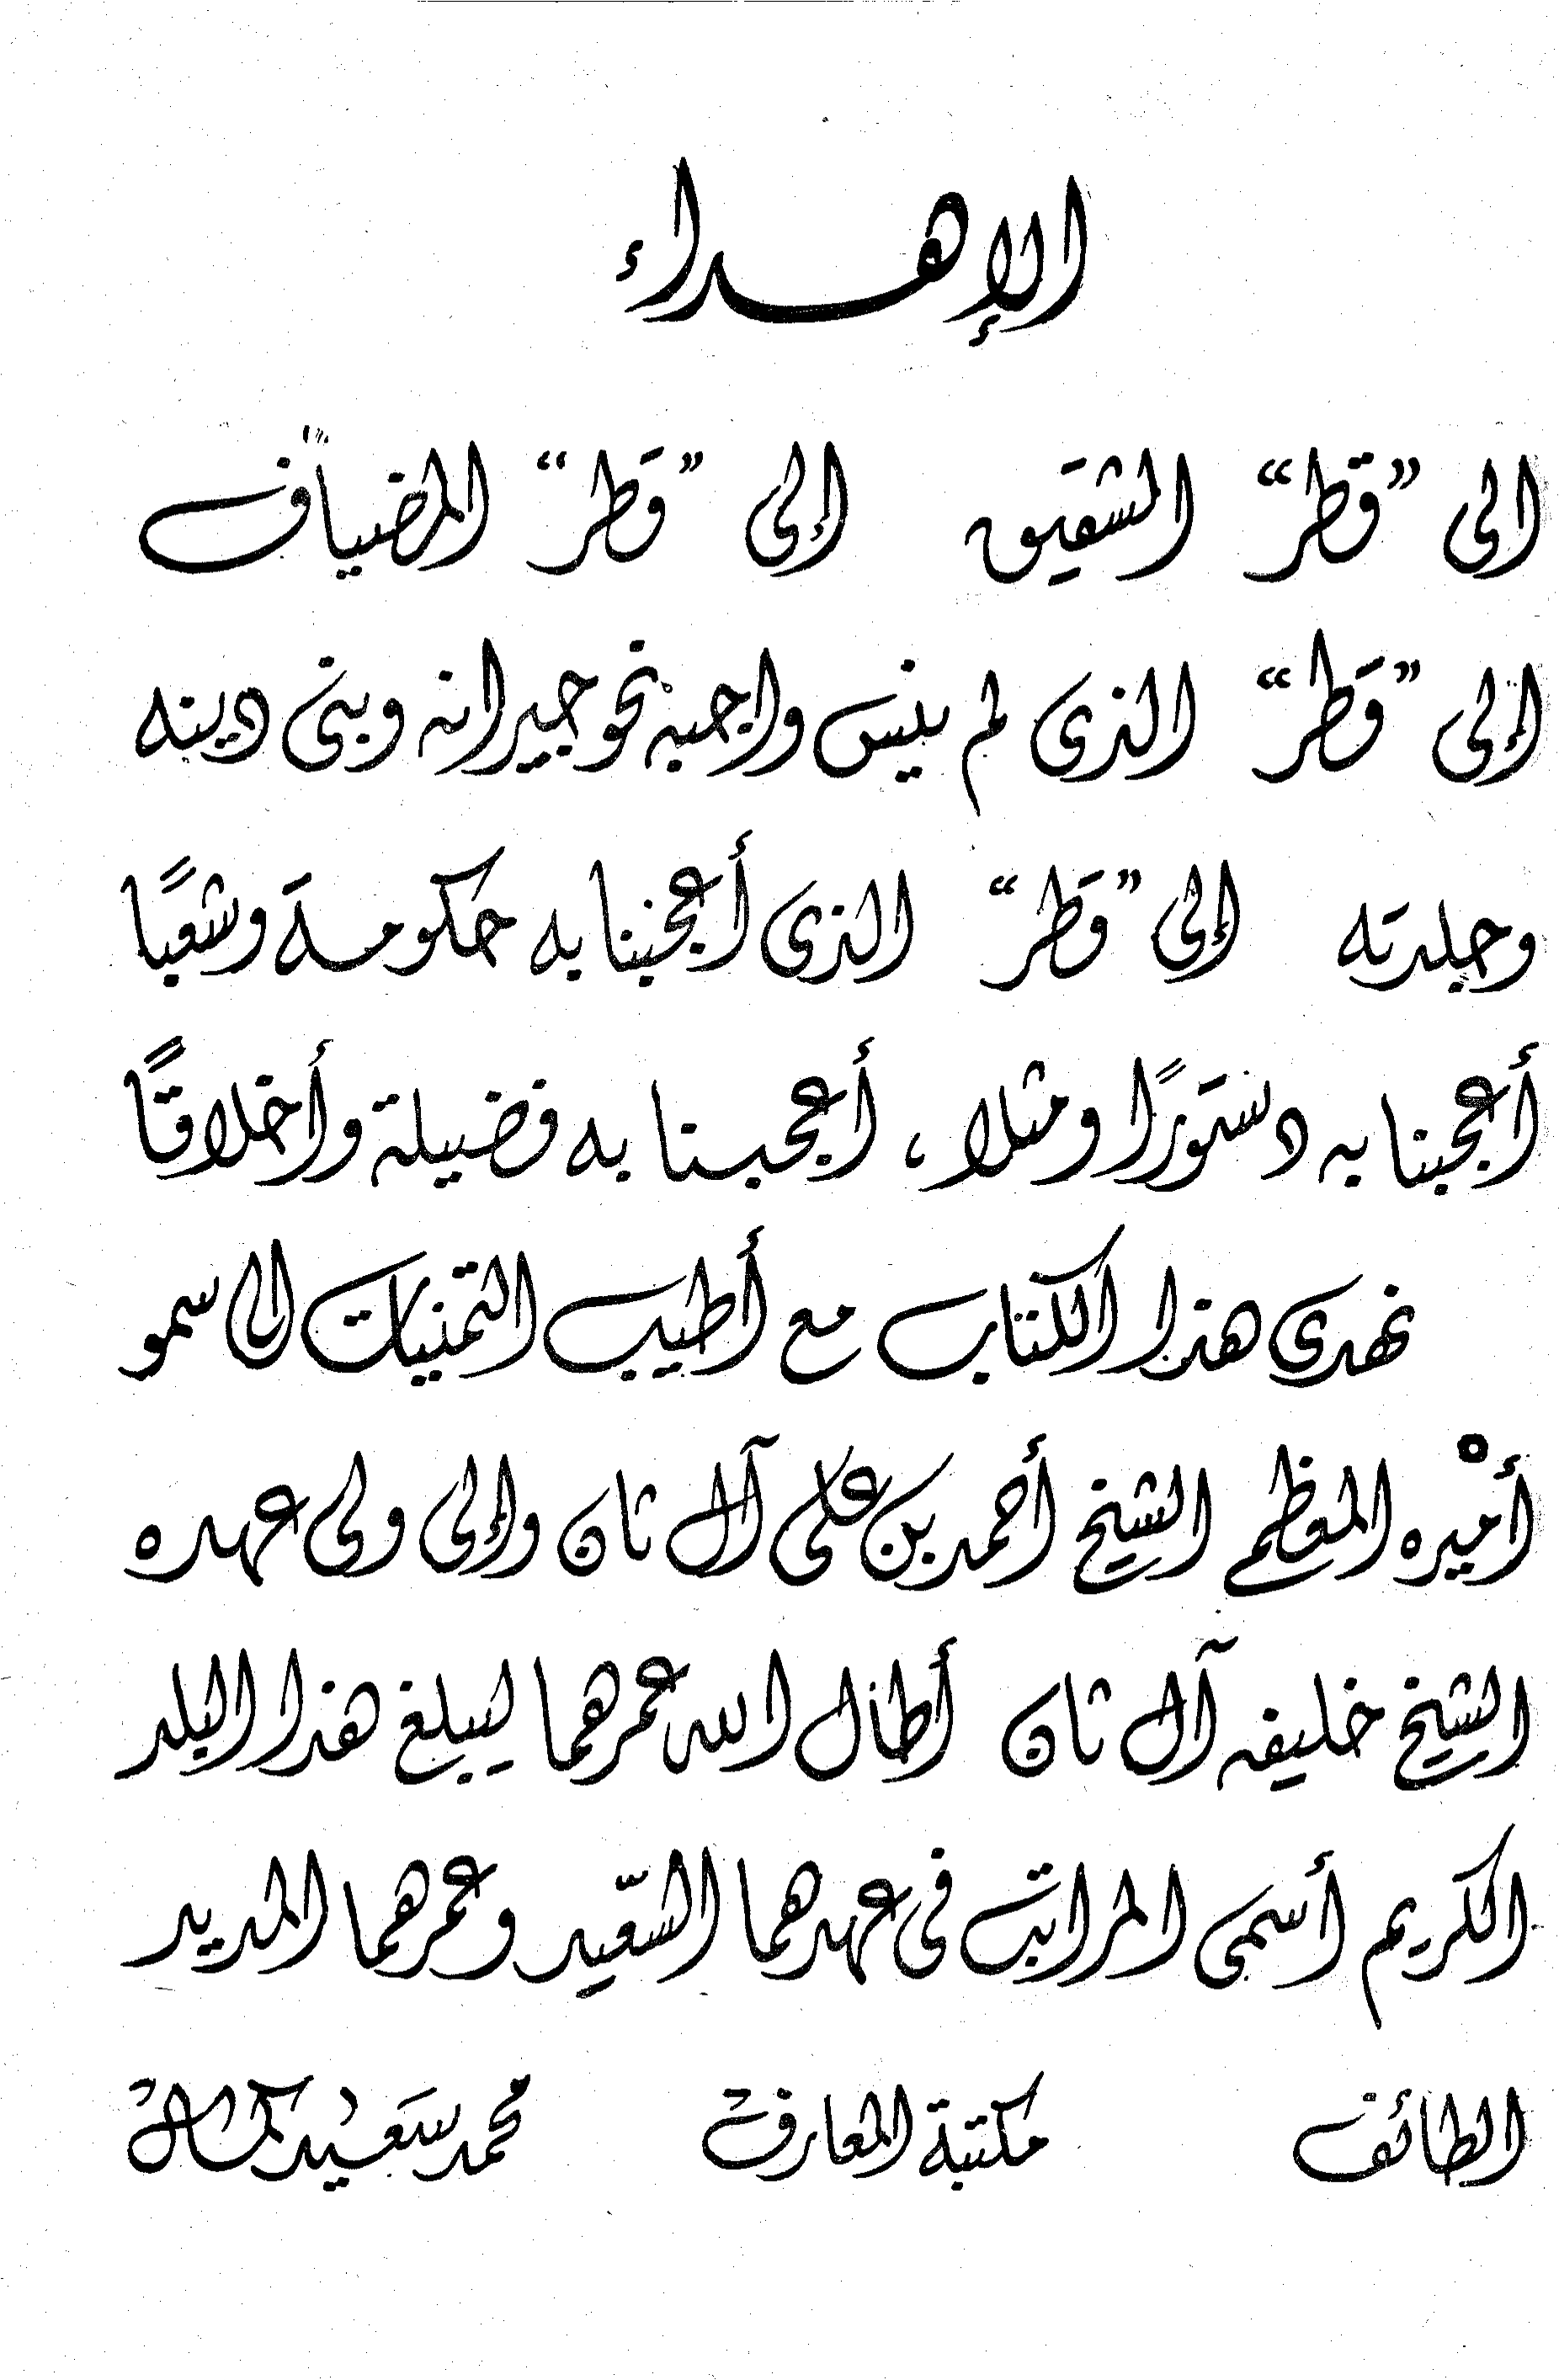 الإهداء
الى "قطر" الشقيق إلى "قطر" المضياف
إلى "قطر" الذى لم ينس واجبه نحو جيرانه وبنى دينه
وجلدته إلى "قطر" الذى أعجبنا به حكومة وشعبًا
أعجبنا به دستورًا ومثلا، أعجبنا به فضيلة وأخلاقًا
نهدى هذا الكتاب مع أطيب التمنيات الى سمو
أميره المعظم الشيخ أحمد بن على آل ثان وإلى ولى عهده
الشيخ خليفه آل ثان أطال الله عمرهما ليبلغ هذا البلد
الكريم أسمى المراتب فى عهدهما السّعيد وعمرهما المديد
الطائف مكتبة المعارف محمد سعيد كمال